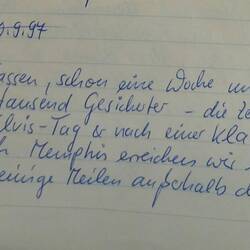 .9.97
assen, schon eine Woche un
tausend Gesichter - die te
Elvis-Tag & nach einer Kla
Memphis erreichen wir
einige Meilen außerhalb d